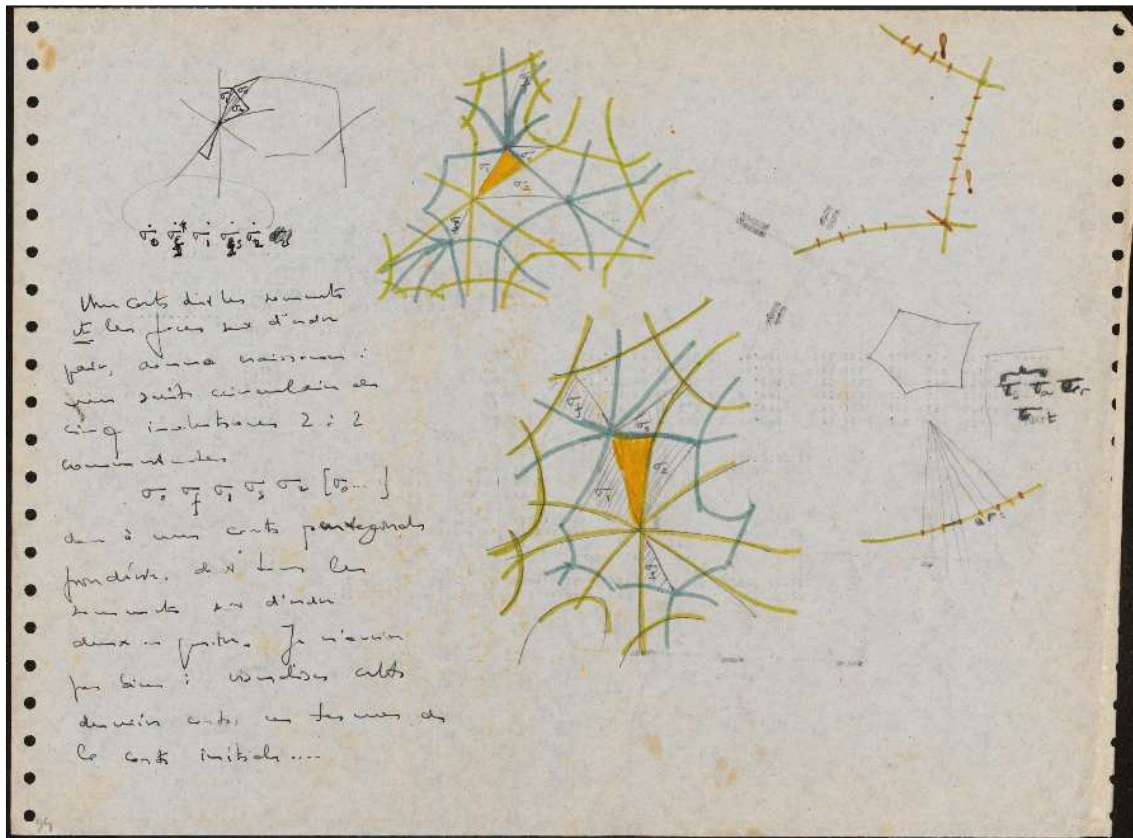 σ₀ σ_f σ₁ σ_s σ₂
Une carte dont les sommets
et les faces sont d'ordre
pair, donne naissance à
une suite circulaire de
cinq involutions 2 à 2
commutantes
σ₀ σ_f σ₁ σ_s σ₂ [σ₀...]
donc à une carte pentagonale
pondérée, dont tous les
sommets sont d'ordre
deux ou quatre. Je n'arrive
pas bien à visualiser cette
dernière carte, en termes de
la carte initiale....
σ₁
σ₀
σ₂
σ_f
σ_s
σ₁
σ₀
σ₂
σ_s
94